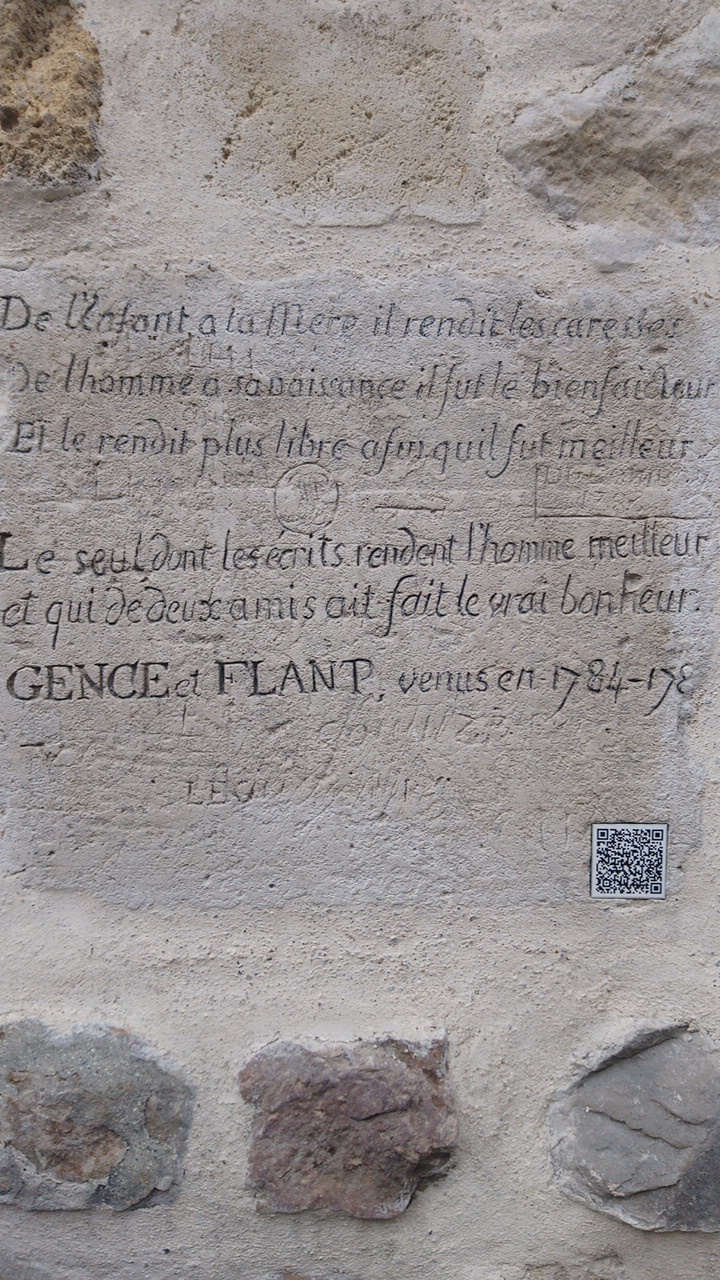 De l'Enfant a la Mere il rendit les caresses
De l'homme a sa naisance il fut le bienfaicteur
Et le rendit plus libre afin quil fut meilleur
Le seul dont les écrits rendent l'homme meilleur
et qui de deux amis ait fait le vrai bonheur.
GENCE et FLANT, venus en 1784-178